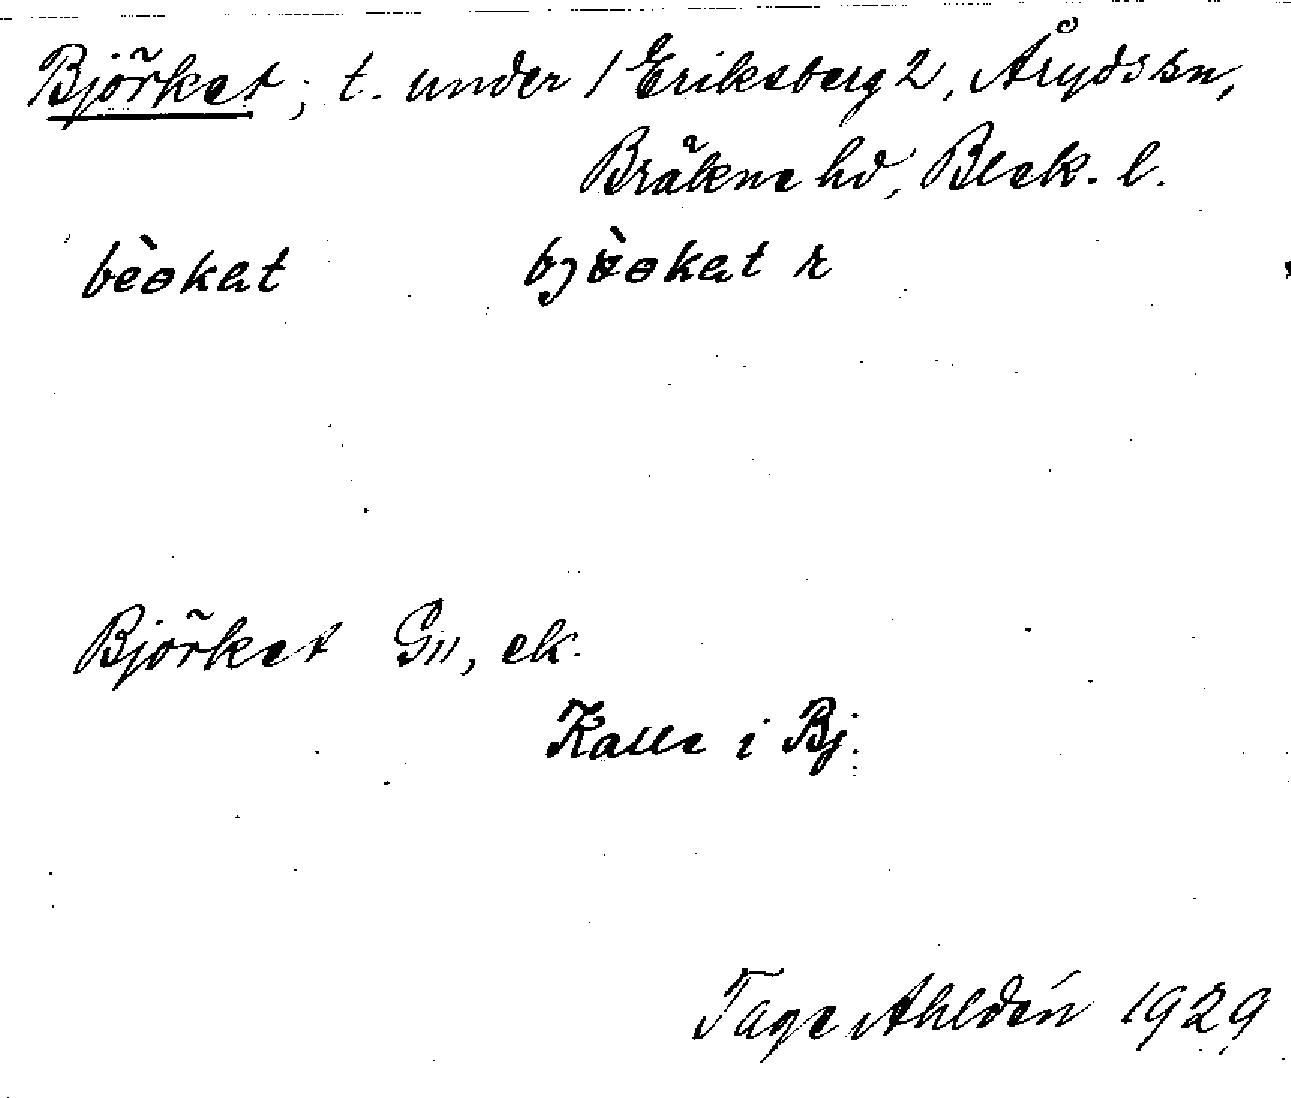 Björket; t. under 1 Eriksberg 2, Åryds sn,
Bräkne hd, Blek. l.
bèəkat bjɵ̀əkat r
Björket GII, ek.
Kalle i Bj.
Tage Ahldén 1929